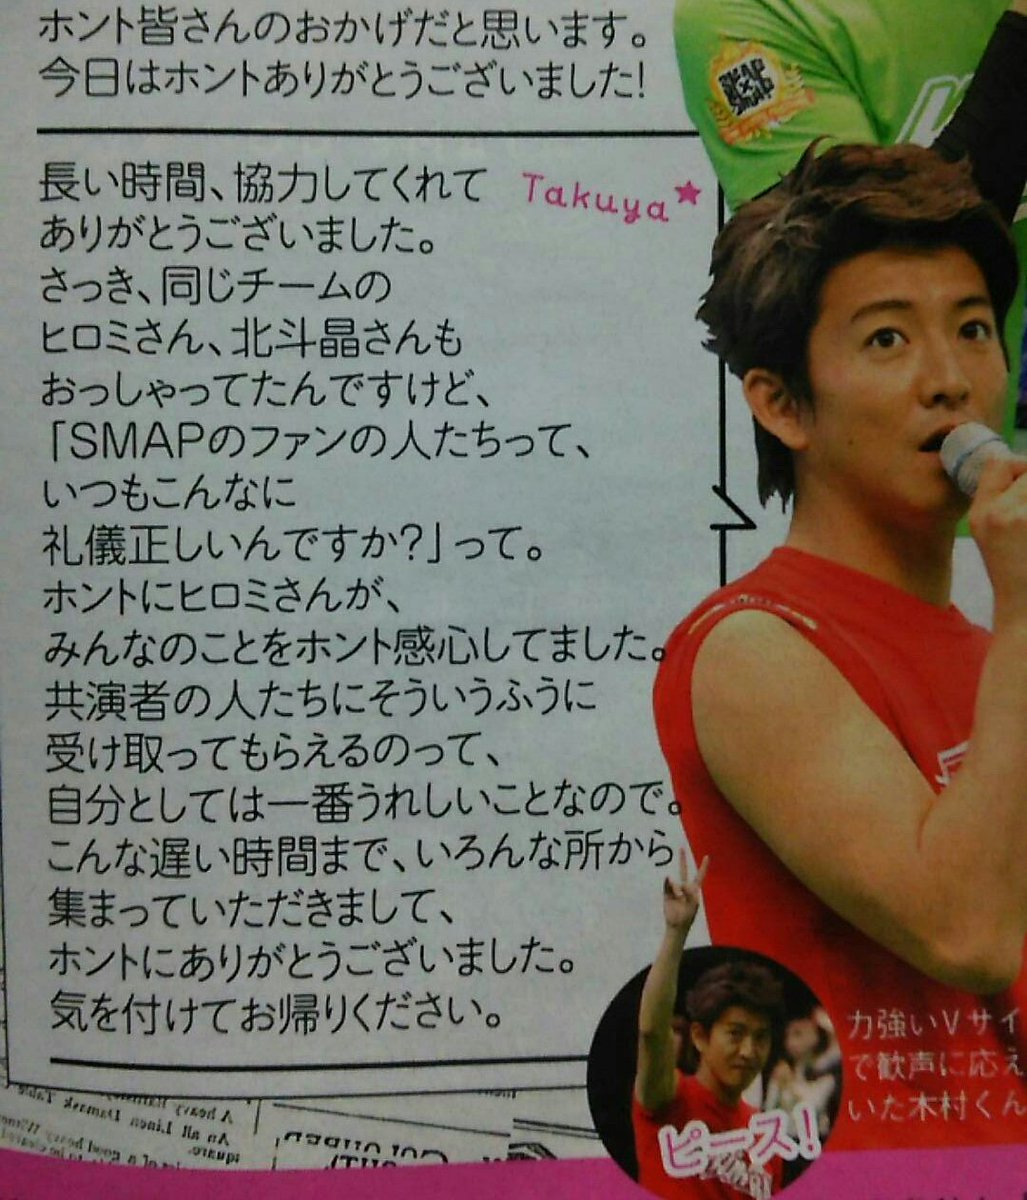 ホント皆さんのおかげだと思います。
今日はホントありがとうございました!
Takuya★
長い時間、協力してくれて
ありがとうございました。
さっき、同じチームの
ヒロミさん、北斗晶さんも
おっしゃってたんですけど、
「SMAPのファンの人たちって、
いつもこんなに
礼儀正しいんですか?」って。
ホントにヒロミさんが、
みんなのことをホント感心してました。
共演者の人たちにそういうふうに
受け取ってもらえるのって、
自分としては一番うれしいことなので。
こんな遅い時間まで、いろんな所から
集まっていただきまして、
ホントにありがとうございました。
気を付けてお帰りください。
力強いVサイ
で歓声に応え
いた木村くん
ピース!